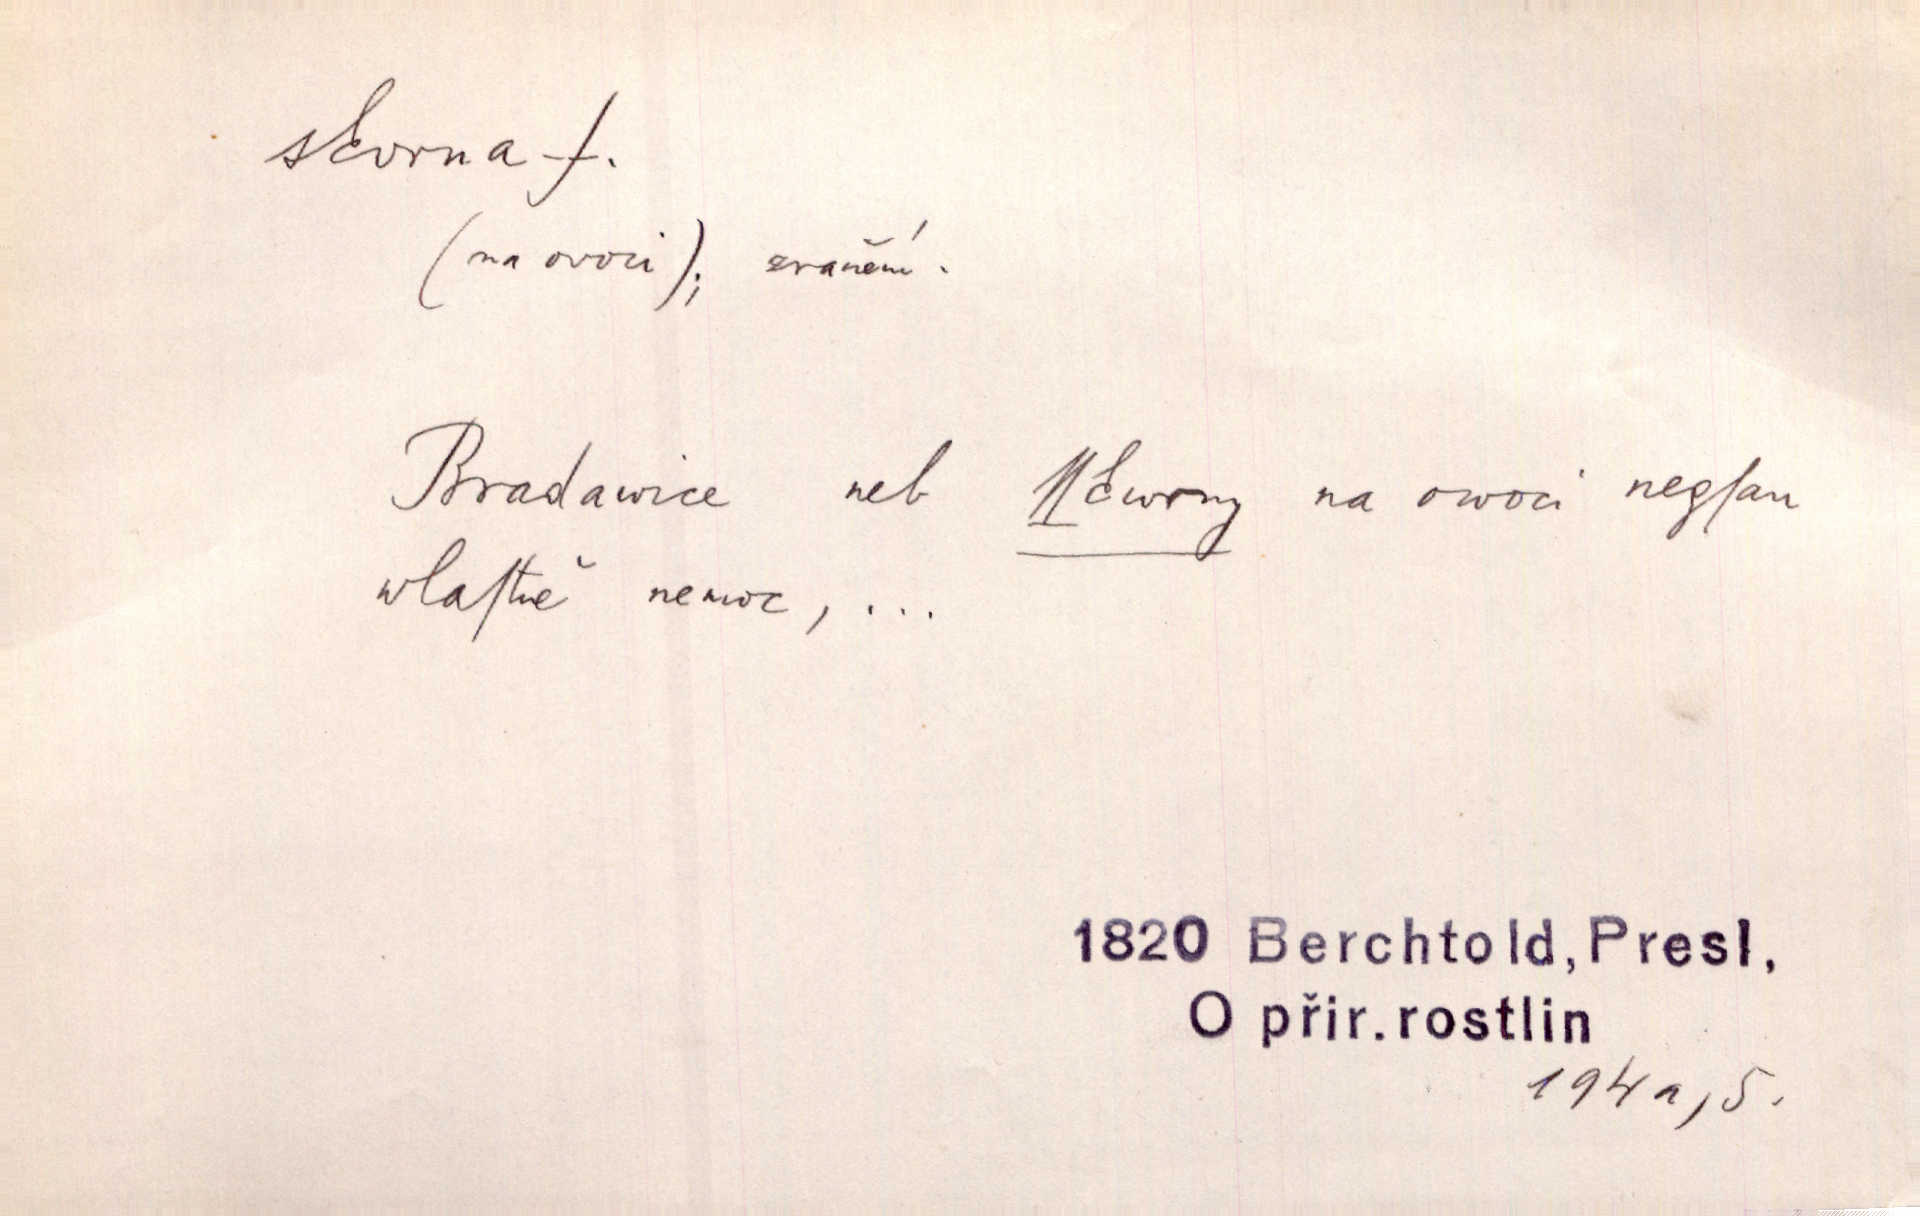 skvrna f.
(na ovoci); zranění.
Bradawice neb ſſkwrny na owoci negſau
wlaſtně nemoc, ...
1820 Berchtold, Presl,
O přir. rostlin
194a, 5.